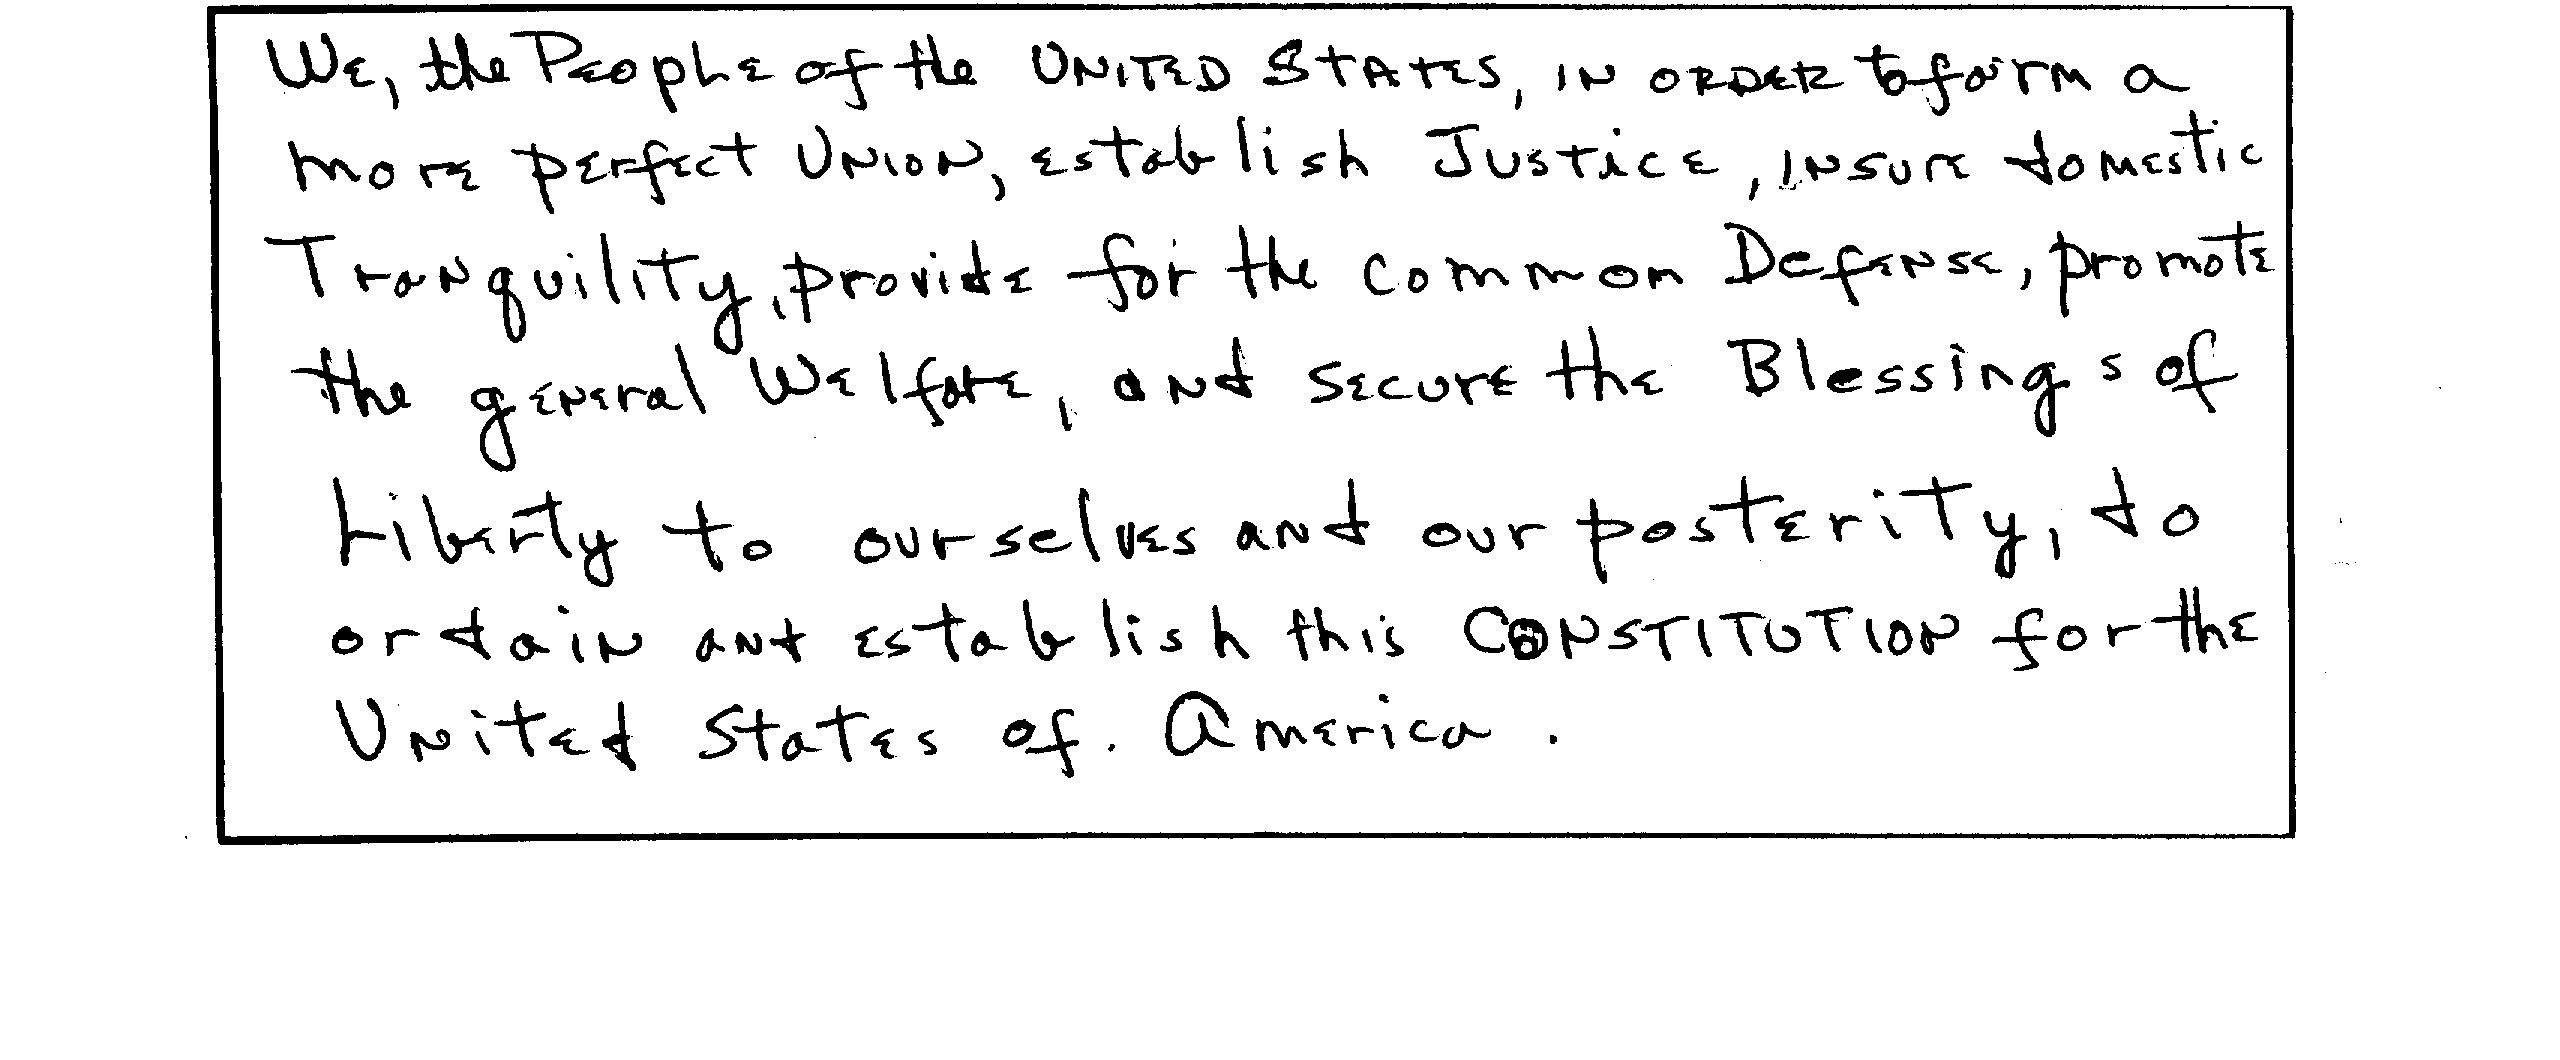 We, the People of the UNITED STATES, IN ORDER to form a
more perfect Union, establish Justice, insure domestic
Tranquility, provide for the common Defense, promote
the general Welfare, and secure the Blessings of
Liberty to ourselves and our posterity, do
ordain and establish this CONSTITUTION for the
United States of. America.